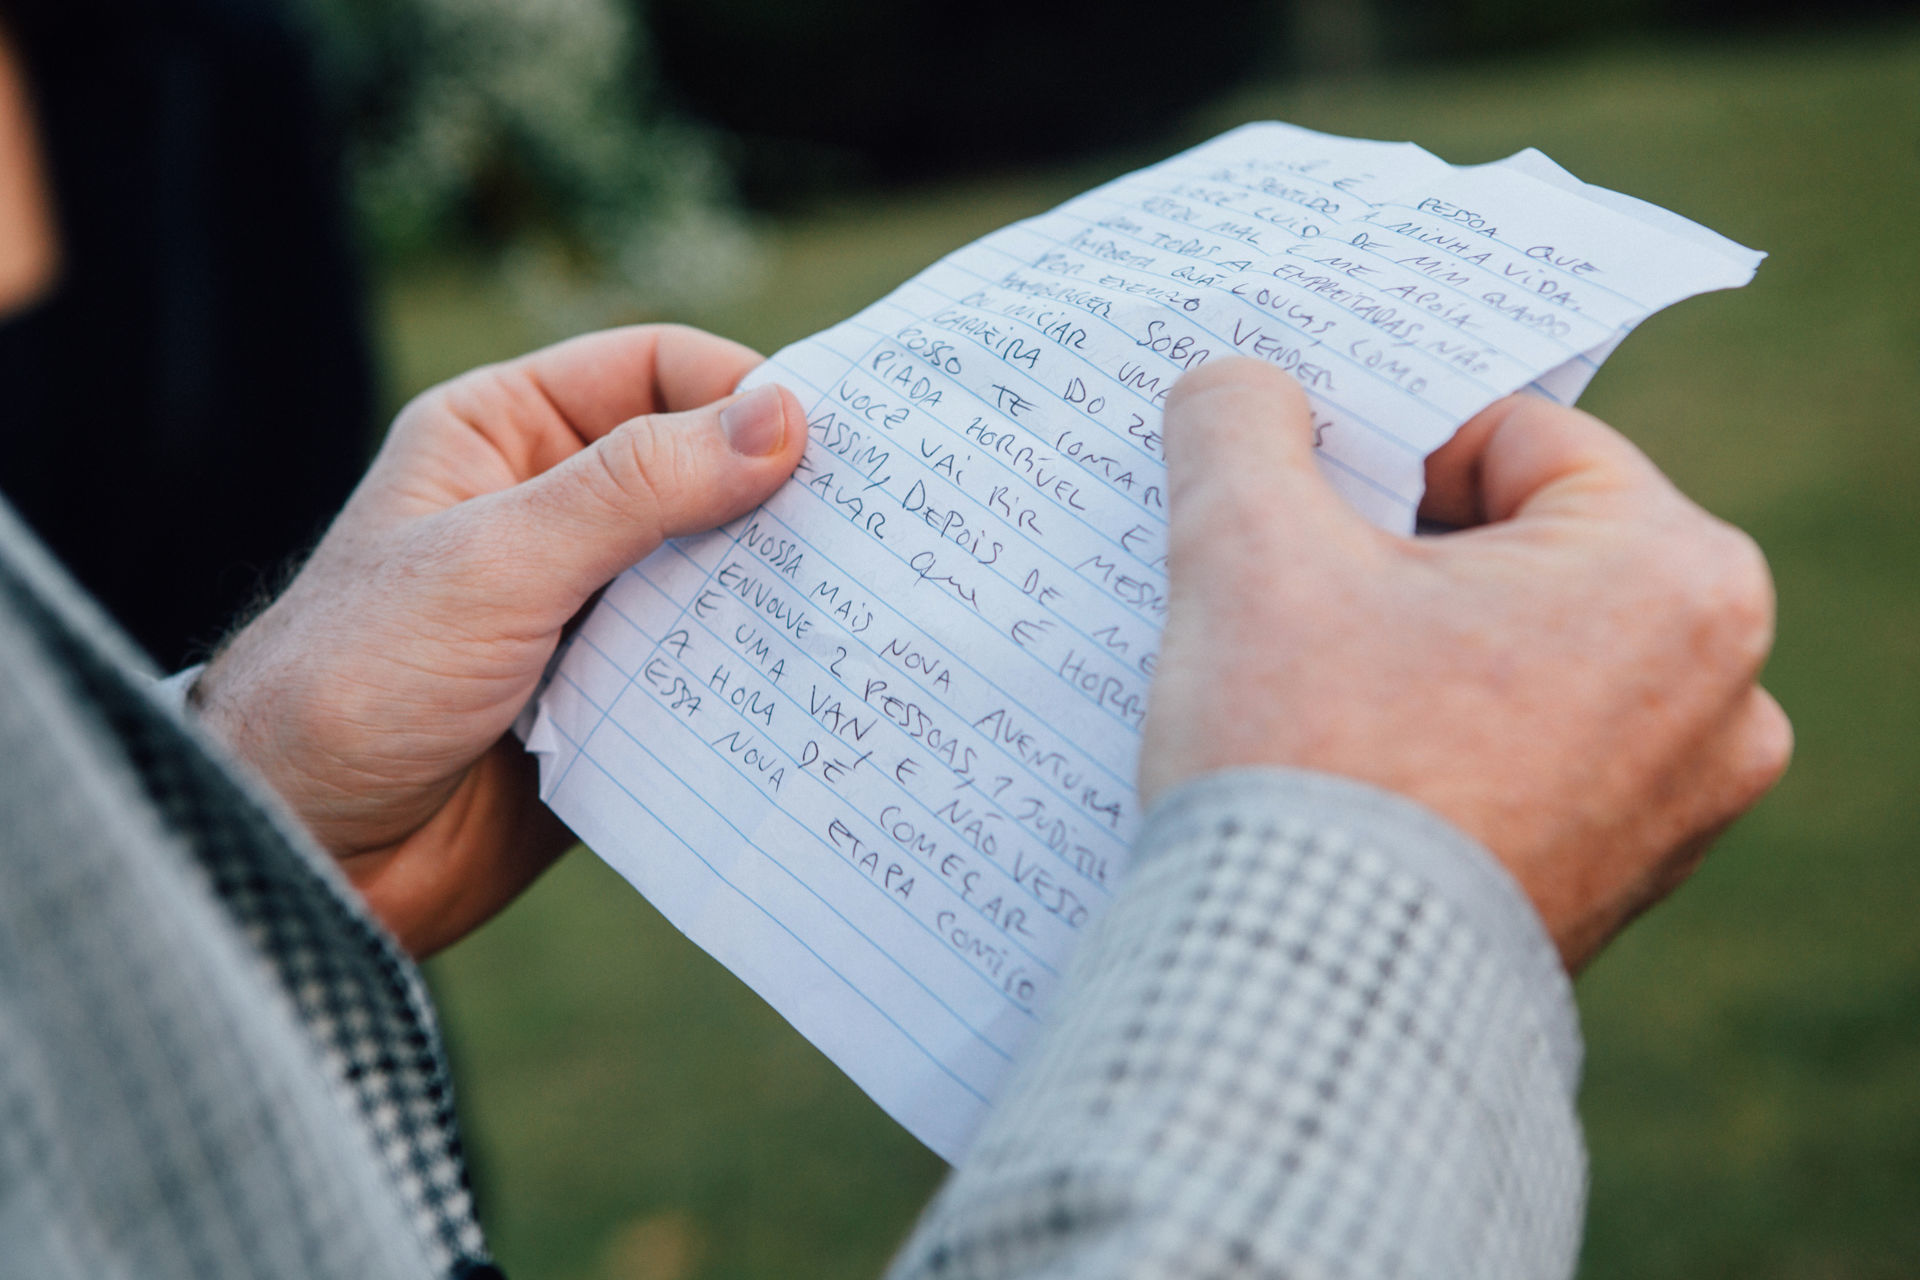 VOCÊ É A PESSOA QUE
DÁ SENTIDO À MINHA VIDA.
VOCÊ CUID DE MIM QUANDO
ESTOU MAL E ME APOIA
COM TODAS A EMPREITADAS, NÃO
IMPORTA QUÃ LOUCAS, COMO
POR EXEMPLO VENDER
HAMBURGUER SOBR S
OU INICIAR UMA
CARREIRA DO ZE
POSSO TE CONTAR
PIADA HORRÍVEL E
VOCÊ VAI RIR MESM
ASSIM, DEPOIS DE ME
FALAR QUE É HORR
NOSSA MAIS NOVA AVENTURA
ENVOLVE 2 PESSOAS, 1 JUDITH
E UMA VAN, E NÃO VEJO
A HORA DE COMEÇAR
ESSA NOVA ETAPA CONTIGO